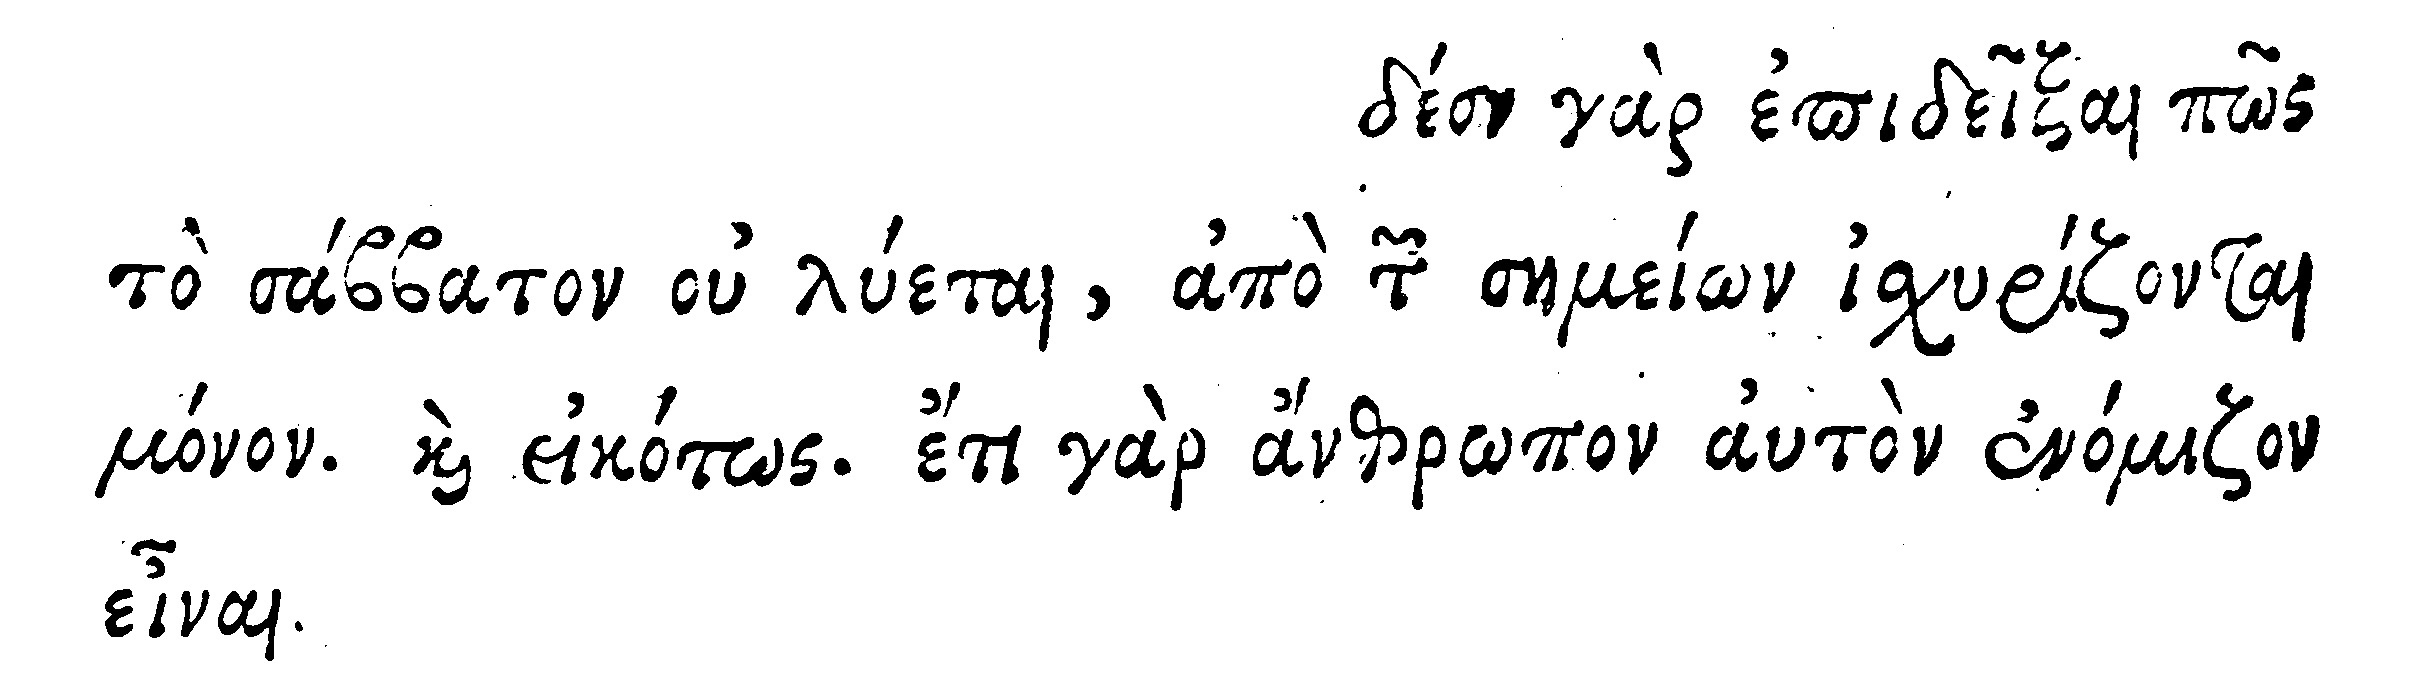 δέον γὰρ ἐπιδεῖξαι πῶς
τὸ σάββατον οὐ λύεται, ἀπὸ τ͂ σημείων ἰσχυρίζονται
μόνον. κὶ εἰκότως. ἔτι γὰρ ἄνθρωπον ἀυτὸν ἐνόμιζον
εἶναι.